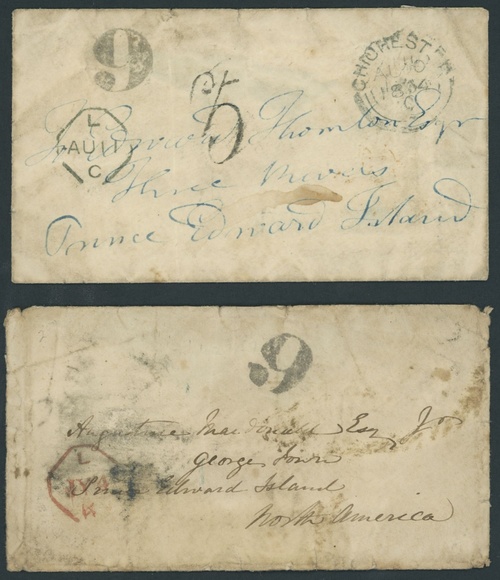 9
6
CHICHESTER
AU 10
L
AU 11
C
Thornton Esqr
Three Rivers
Prince Edward Island
9
Augustine MacDonald Esq Jr
George Town
Prince Edward Island
North America
L